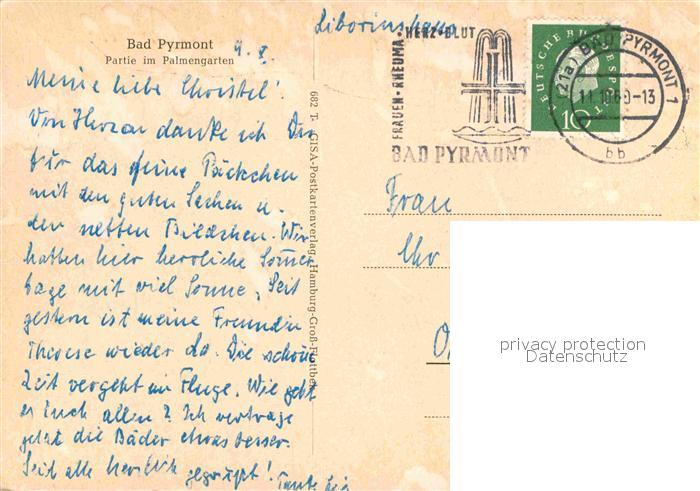 Bad Pyrmont
Partie im Palmengarten
Meine liebe Christel!
Von Herzen danke ich Dir
für das feine Päckchen
mit den guten Sachen u.
den netten Bildchen. Wir
hatten hier herrliche Sommer
tage mit viel Sonne, Seit
gestern ist meine Freundin
Therese wieder da. Die schöne
Zeit vergeht im Fluge. Wie geht
es Euch allen? Ich vertrage
jetzt die Bäder etwas besser.
Seid alle herzlich gegrüßt! Tante
682 T. GISA-Postkartenverlag, Hamburg-Groß-Flottbek
Liborinshaus
FRAUEN·RHEUMA·HERZ·BLUT
BAD PYRMONT
DEUTSCHE BUNDESPOST
10
(21a) BAD PYRMONT 1
11.10.60-13
bb
Frau
Chr
privacy protection
Datenschutz